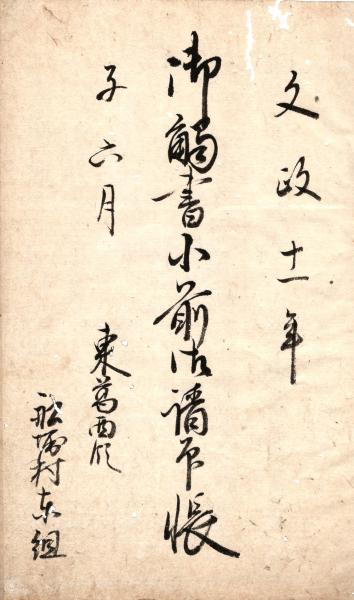 文政十一年
御觸書小前御請印帳
子六月
東葛西領
舩堀村東組